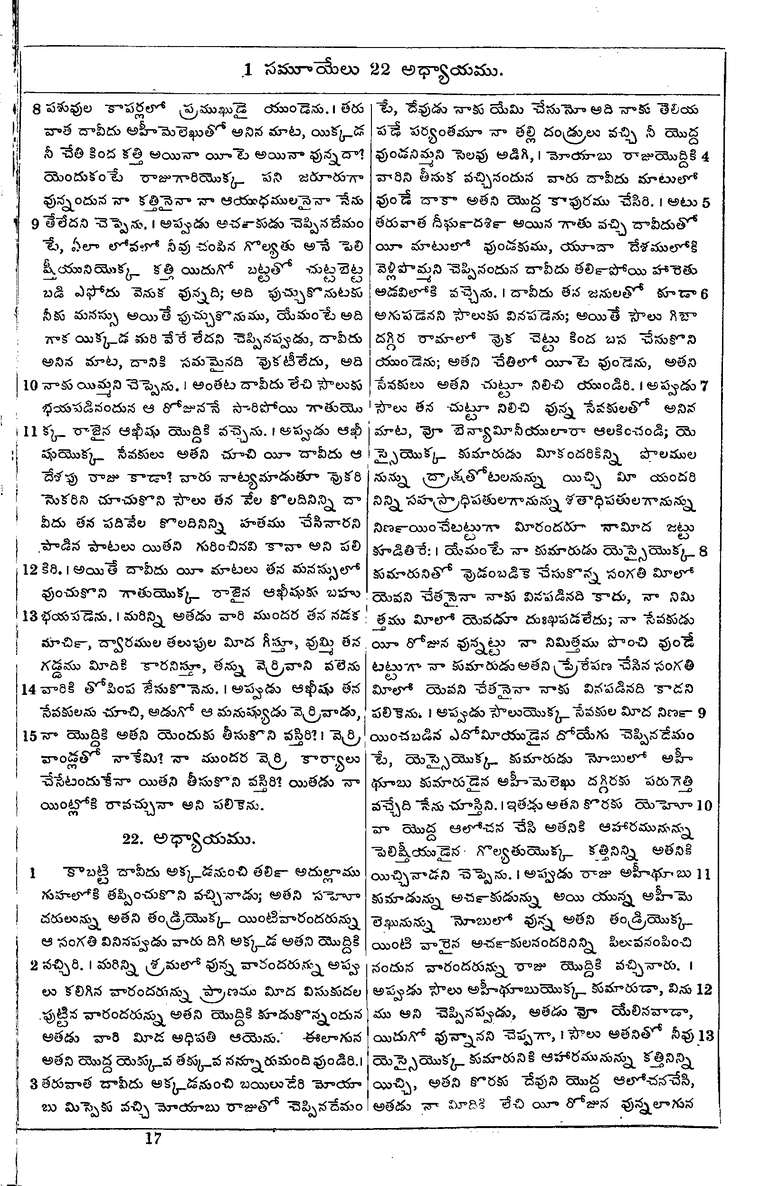 1 సమూయేలు 22 అధ్యాయము.
8 పశువుల కాపర్లలో ప్రముఖుడై యుండెను. । తరు
వాత దావీదు అహీమెలెఖుతో అనిన మాట, యిక్కడ
నీ చేతి కింద కత్తి అయినా యీటె అయినా వున్నదా?
యెందుకంటే రాజుగారియొక్క పని జరూరుగా
వున్నందున నా కత్తినైనా నా ఆయుధములనైనా నేను
9 తేలేదని చెప్పెను. । అప్పడు అచ౯కుడు చెప్పినదేమం
టే, యేలా లోవలో నీవు చంపిన గోల్యతు అనే పెలి
ష్తీయునియొక్క కత్తి యిదుగో బట్టతో చుట్టబెట్ట
బడి ఎఫోదు వెనుక వున్నది; అది పుచ్చుకొనుటకు
నీకు మనస్సు అయితే పుచ్చుకొనుము, యేమంటే అది
గాక యిక్కడ మరి వేరే లేదని చెప్పినప్పడు, దావీదు
అనిన మాట, దానికి సమమైనది వొకటీలేదు, అది
10 నాకు యిమ్మని చెప్పెను. । అంతట దావీదు లేచి సౌలుకు
భయపడినందున ఆ రోజుననే పారిపోయి గాతుయొ
11 క్క రాజైన ఆఖీషు యొద్దికి వచ్చెను. । అప్పుడు ఆఖీ
షుయొక్క సేవకులు అతని చూచి యీ దావీదు ఆ
దేశపు రాజు కాడా? వారు నాట్యమాడుతూ వొకరి
నొకరిని చూచుకొని సౌలు తన వేల కొలదినిన్ని దా
వీదు తన పదివేల కొలదినిన్ని హతము చేసినారని
పాడిన పాటలు యితని గురించినవి కావా అని పలి
12 కిరి. । అయితే దావీదు యీ మాటలు తన మనస్సులో
వుంచుకొని గాతుయొక్క రాజైన ఆఖీషుకు బహు
13 భయపడెను. । మరిన్ని అతడు వారి ముందర తన నడక
మాచి౯, ద్వారముల తలుపుల మీద గీస్తూ, వుమ్మి తన
గడ్డము మీదికి కారనిస్తూ, తన్ను వెర్రివాని వలెను
14 వారికి తోపింప జేసుకొనెను. । అప్పడు ఆఖీషు తన
సేవకులను చూచి, అడుగో ఆ మనుష్యుడు వెర్రివాడు,
15 నా యొద్దికి అతని యెందుకు తీసుకొని వస్తిరి? । వెర్రి
వాండ్లతో నాకేమి? నా ముందర వెర్రి కార్యాలు
చేసేటందుకేనా యితని తీసుకొని వస్తిరి? యితడు నా
యింట్లోకి రావచ్చునా అని పలికెను.
22. అధ్యాయము.
1 కాబట్టి దావీదు అక్కడనుంచి తలి౯ అదుల్లాము
గుహలోకి తప్పించుకొని వచ్చినాడు; అతని సహో
దరులున్ను అతని తండ్రియొక్క యింటివారందరున్ను
ఆ సంగతి వినినప్పడు వారు దిగి అక్కడ అతని యొద్దికి
2 వచ్చిరి. । మరిన్ని శ్రమలో వున్న వారందరున్ను అప్పు
లు కలిగిన వారందరున్ను ప్రాణము మీద విసుకుదల
పుట్టిన వారందరున్ను అతని యొద్దికి కూడుకొన్నందున
అతడు వారి మీద అధిపతి ఆయెను. ఈలాగున
అతని యొద్ద యెక్కువ తక్కువ నన్నూరుమంది వుండిరి. ।
3 తరువాత దావీదు అక్కడనుంచి బయిలుదేరి మోయా
బు మిస్పెకు వచ్చి మోయాబు రాజుతో చెప్పినదేమం
టే, దేవుడు నాకు యేమి చేసునో అది నాకు తెలియ
పడే పర్యంతమూ నా తల్లి దండ్రులు వచ్చి నీ యొద్ద
వుండనిమ్మని సెలవు అడిగి, । మోయాబు రాజుయొద్దికి 4
వారిని తీసుక వచ్చినందున వారు దావీదు మాటులో
వుండే దాకా అతని యొద్ద కాపురము చేసిరి. । అటు 5
తరువాత దీఘ౯దశి౯ అయిన గాతు వచ్చి దావీదుతో
యీ మాటులో వుండకుము, యూదా దేశములోకి
వెళ్లిపొమ్మని చెప్పినందున దావీదు తలి౯పోయి హారెతు
అడవిలోకి వచ్చెను. । దావీదు తన జనులతో కూడా 6
అగుపడెనని సౌలుకు వినపడెను; అయితే సౌలు గిబా
దగ్గిర రామాలో వొక చెట్టు కింద బస చేసుకొని
యుండెను; అతని చేతిలో యీటె వుండెను, అతని
సేవకులు అతని చుట్టూ నిలిచి యుండిరి. । అప్పడు 7
సౌలు తన చుట్టూ నిలిచి వున్న సేవకులతో అనిన
మాట, వో బెన్యామినీయులారా ఆలకించండి; యె
స్సైయొక్క కుమారుడు మీకందరికిన్ని పొలముల
నున్ను ద్రాక్షతోటలనున్ను యిచ్చి మీ యందరి
నిన్ని సహస్రాధిపతులగానున్ను శతాధిపతులగానున్ను
నిణ౯యించేటట్టుగా మీరందరూ నామీద జట్టు
కూడితిరే: । యేమంటే నా కుమారుడు యెస్సైయొక్క 8
కుమారునితో వుడంబడికె చేసుకొన్న సంగతి మీలో
యెవని చేతనైనా నాకు వినపడినది కాదు, నా నిమి
త్తము మీలో యెవడూ దుఃఖపడలేదు; నా సేవకుడు
యీ రోజున వున్నట్టు నా నిమిత్తము పొంచి వుండే
టట్టుగా నా కుమారుడు అతని ప్రేరేపణ చేసిన సంగతి
మీలో యెవని చేతనైనా నాకు వినపడినది కాదని
పలికెను. । అప్పడు సౌలుయొక్క సేవకుల మీద నిణ౯ 9
యించబడిన ఎదోమీయుడైన దోయేగు చెప్పినదేమం
టే, యెస్సైయొక్క కుమారుడు నోబులో అహీ
థూబు కుమారుడైన అహీమెలెఖు దగ్గిరకు పరుగెత్తి
వచ్చేది నేను చూస్తిని. । ఇతడు అతని కొరకు యెహో 10
వా యొద్ద ఆలోచన చేసి అతనికి ఆహారమునున్ను
పెలిష్తీయుడైన గోల్యతుయొక్క కత్తినిన్ని అతనికి
యిచ్చినాడని చెప్పెను. । అప్పుడు రాజు అహీథూబు 11
కుమాడున్ను అచ౯కుడున్ను అయి యున్న అహీమె
లెఖునున్ను నోబులో వున్న అతని తండ్రియొక్క
యింటి వారైన అచ౯కులనందరినిన్ని పిలవనంపించి
నందున వారందరున్ను రాజు యొద్దికి వచ్చినారు. ।
అప్పుడు సౌలు అహీథూబుయొక్క కుమారుడా, విను 12
ము అని చెప్పినప్పుడు, అతడు వో యేలినవాడా,
యిదుగో వున్నానని చెప్పగా, । సౌలు అతనితో నీవు 13
యెస్సైయొక్క కుమారునికి ఆహారమునున్ను కత్తినిన్ని
యిచ్చి, అతని కొరకు దేవుని యొద్ద ఆలోచనచేసి,
అతడు నా మీదికి లేచి యీ రోజున వున్నలాగున
17